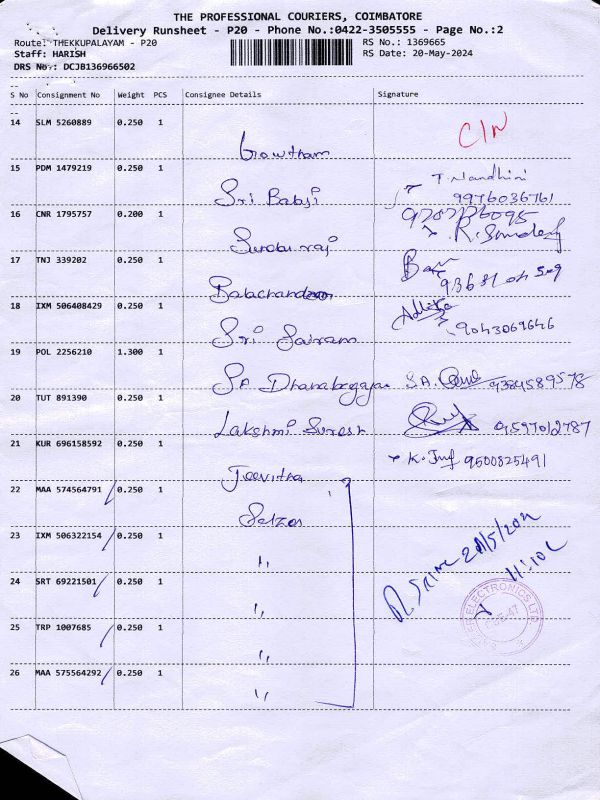 THE PROFESSIONAL COURIERS, COIMBATORE
Delivery Runsheet - P20 - Phone No.:0422-3505555 - Page No.:2
Route: THEKKUPALAYAM - P20
RS No.: 1369665
Staff: HARISH
RS Date: 20-May-2024
DRS No: DCJB136966502
S No Consignment No Weight PCS Consignee Details Signature
14 SLM 5260889 0.250 1 Gowtham
15 PDM 1479219 0.250 1 Sri Balaji T. Nandhini 9976036761
16 CNR 1795757 0.200 1
17 TNJ 339202 0.250 1 Balachandran
18 IXM 506408429 0.250 1 Sri Sairam 9043069646
19 POL 2256210 1.300 1 SA Dhanabagyam S.A. 9384589578
20 TUT 891390 0.250 1 Lakshmi Suresh 9597012787
21 KUR 696158592 0.250 1 Jeevitha 9500825491
22 MAA 574564791 0.250 1 Selzer
23 IXM 506322154 0.250 1 "
24 SRT 69221501 0.250 1 "
25 TRP 1007685 0.250 1 "
26 MAA 575564292 0.250 1 "
ELECTRONICS LTD